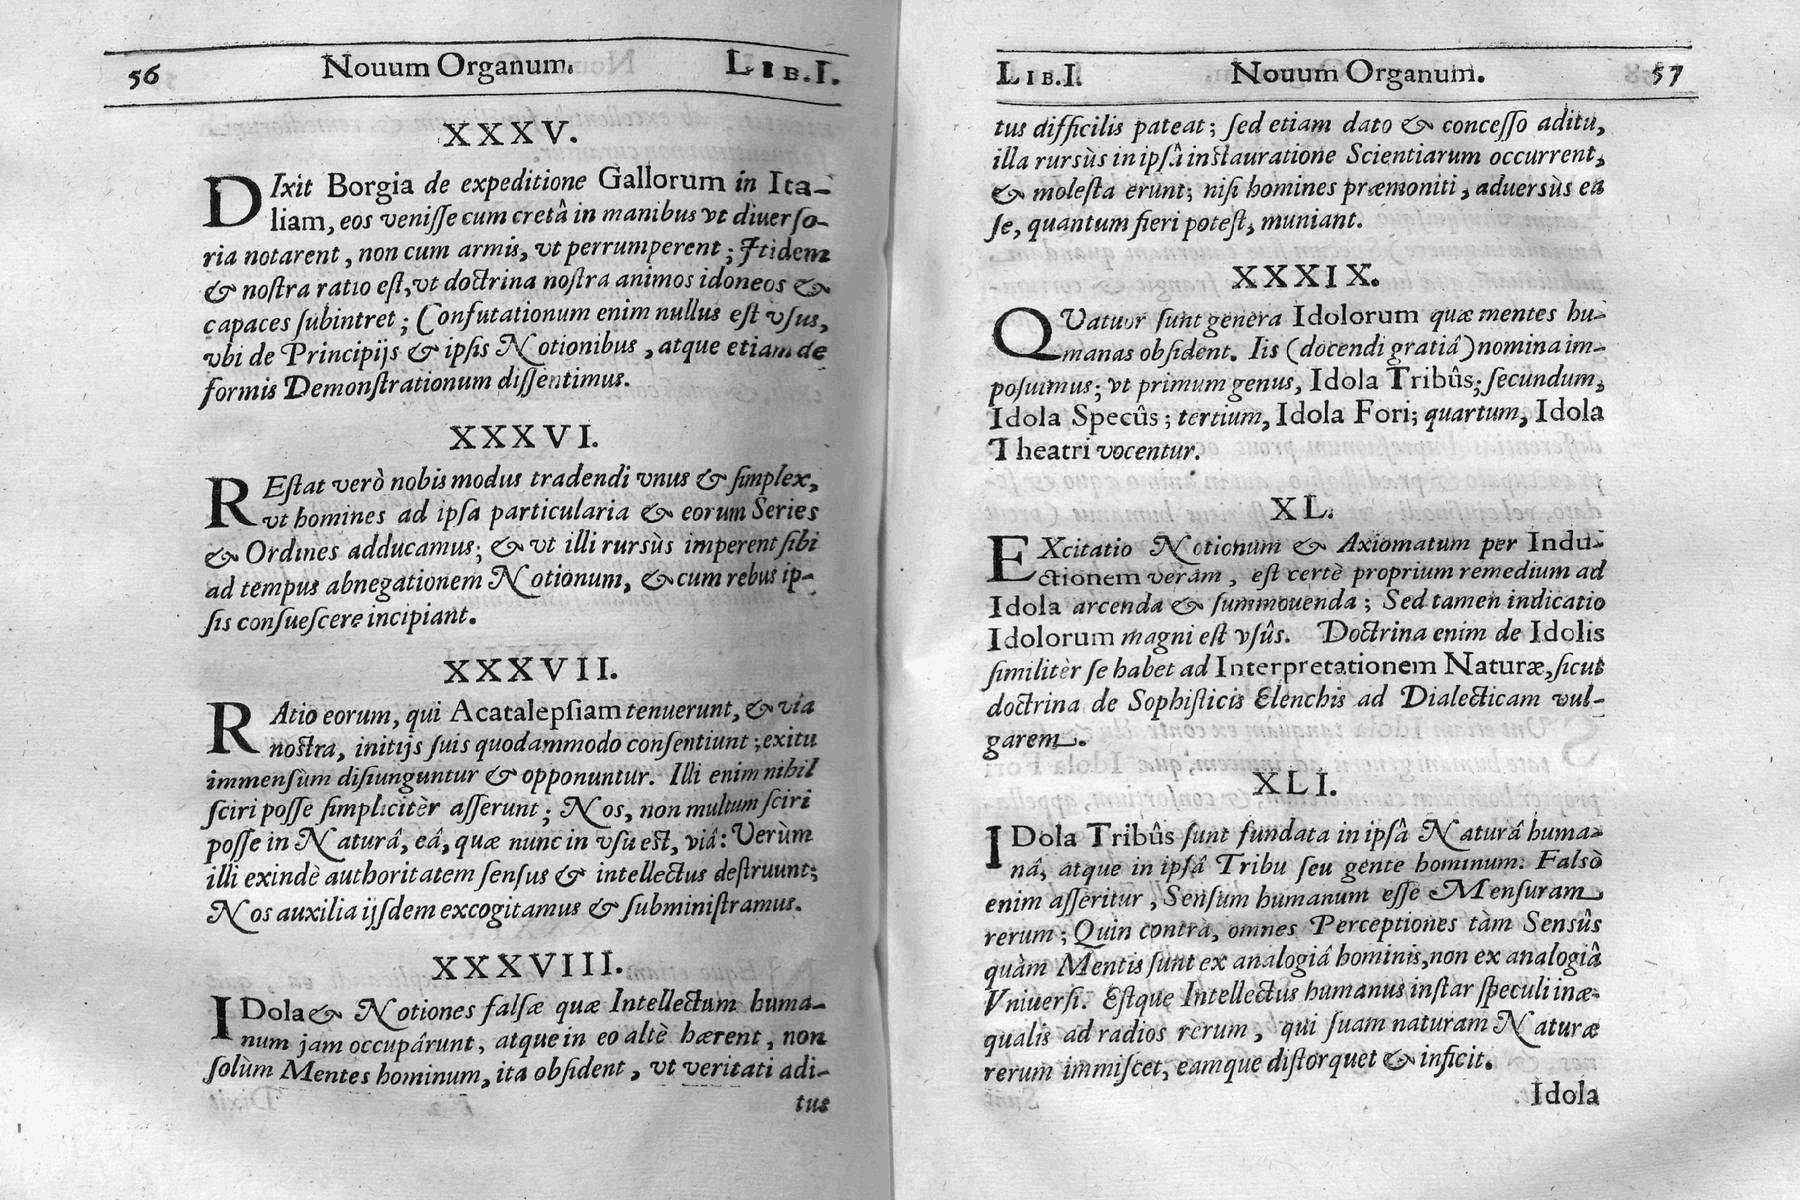 56 Nouum Organum. LIB.I.
XXXV.
DIxit Borgia de expeditione Gallorum in Ita-
liam, eos venisse cum cretâ in manibus vt diuerso-
ria notarent, non cum armis, vt perrumperent; Itidem
& nostra ratio est, vt doctrina nostra animos idoneos &
capaces subintret; Confutationum enim nullus est vsus,
vbi de Principijs & ipsis Notionibus, atque etiam de
formis Demonstrationum dissentimus.
XXXVI.
REstat verò nobis modus tradendi vnus & simplex,
vt homines ad ipsa particularia & eorum Series
& Ordines adducamus; & vt illi rursùs imperent sibi
ad tempus abnegationem Notionum, & cum rebus ip-
sis consuescere incipiant.
XXXVII.
RAtio eorum, qui Acatalepsiam tenuerunt, & via
nostra, initijs suis quodammodo consentiunt; exitu
immensùm disiunguntur & opponuntur. Illi enim nihil
sciri posse simplicitèr asserunt; Nos, non multum sciri
posse in Naturâ, eâ, quæ nunc in vsu est, viâ: Verùm
illi exindè authoritatem sensus & intellectus destruunt;
Nos auxilia ijsdem excogitamus & subministramus.
XXXVIII.
IDola & Notiones falsæ quæ Intellectum huma-
num jam occupârunt, atque in eo altè hærent, non
solùm Mentes hominum, ita obsident, vt veritati adi-
tus
LIB.I. Nouum Organum. 57
tus difficilis pateat; sed etiam dato & concesso aditu,
illa rursùs in ipsâ instauratione Scientiarum occurrent,
& molesta erunt; nisi homines præmoniti, aduersùs ea
se, quantum fieri potest, muniant.
XXXIX.
QVatuor sunt genera Idolorum quæ mentes hu-
manas obsident. Iis (docendi gratiâ) nomina im-
posuimus; vt primum genus, Idola Tribûs; secundum,
Idola Specûs; tertium, Idola Fori; quartum, Idola
Theatri vocentur.
XL.
EXcitatio Notionum & Axiomatum per Indu-
ctionem veram, est certè proprium remedium ad
Idola arcenda & summouenda; Sed tamen indicatio
Idolorum magni est vsûs. Doctrina enim de Idolis
similitèr se habet ad Interpretationem Naturæ, sicut
doctrina de Sophisticis Elenchis ad Dialecticam vul-
garem.
XLI.
IDola Tribûs sunt fundata in ipsâ Naturâ huma-
nâ, atque in ipsâ Tribu seu gente hominum. Falsò
enim asseritur, Sensum humanum esse Mensuram
rerum; Quin contrà, omnes Perceptiones tàm Sensûs
quàm Mentis sunt ex analogiâ hominis, non ex analogiâ
Vniuersi. Estque Intellectus humanus instar speculi inæ-
qualis ad radios rerum, qui suam naturam Naturæ
rerum immiscet, eamque distorquet & inficit.
Idola